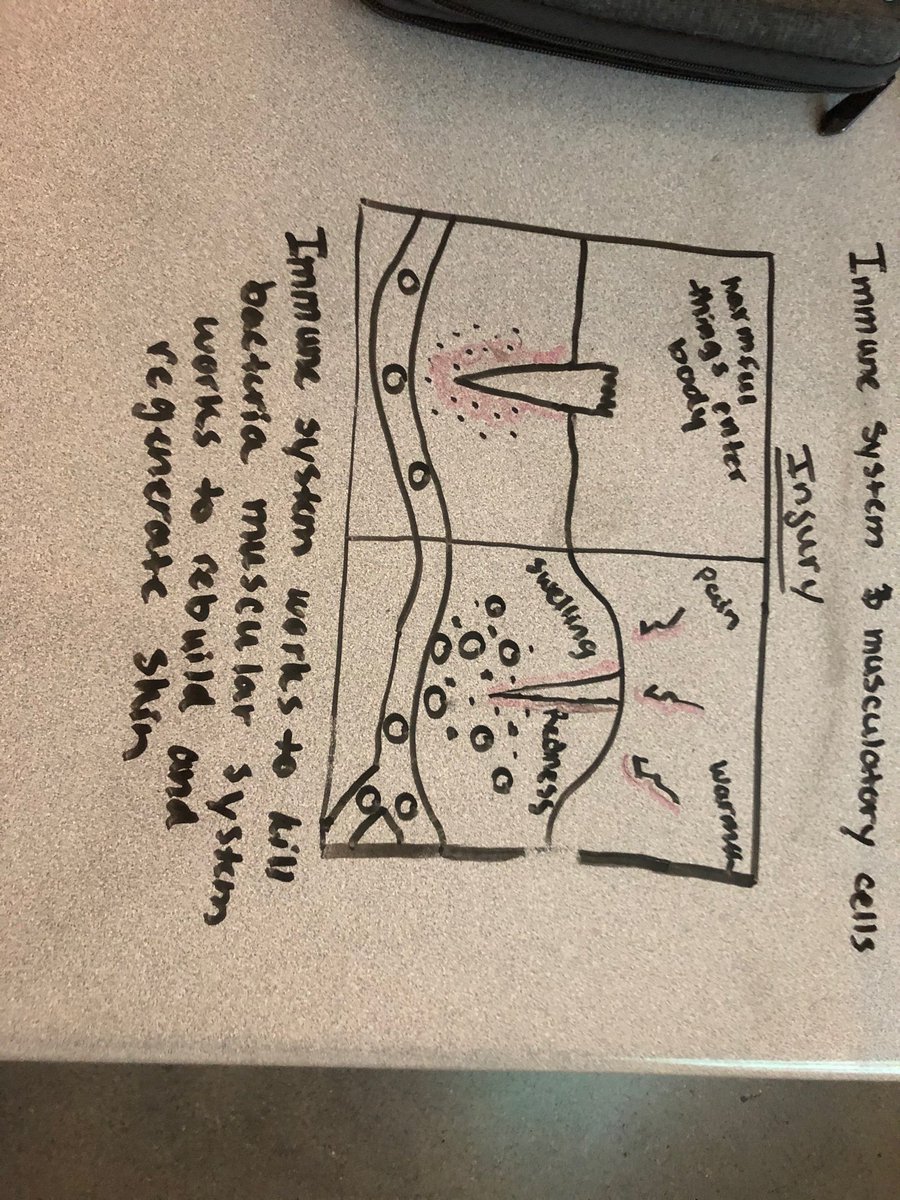 Immune system & musculatory cells
Insury
harmful
things enter
body
pain
warmth
swelling
Redness
Immune system works to kill
bacteria muscular system
works to rebuild and
regenerate skin